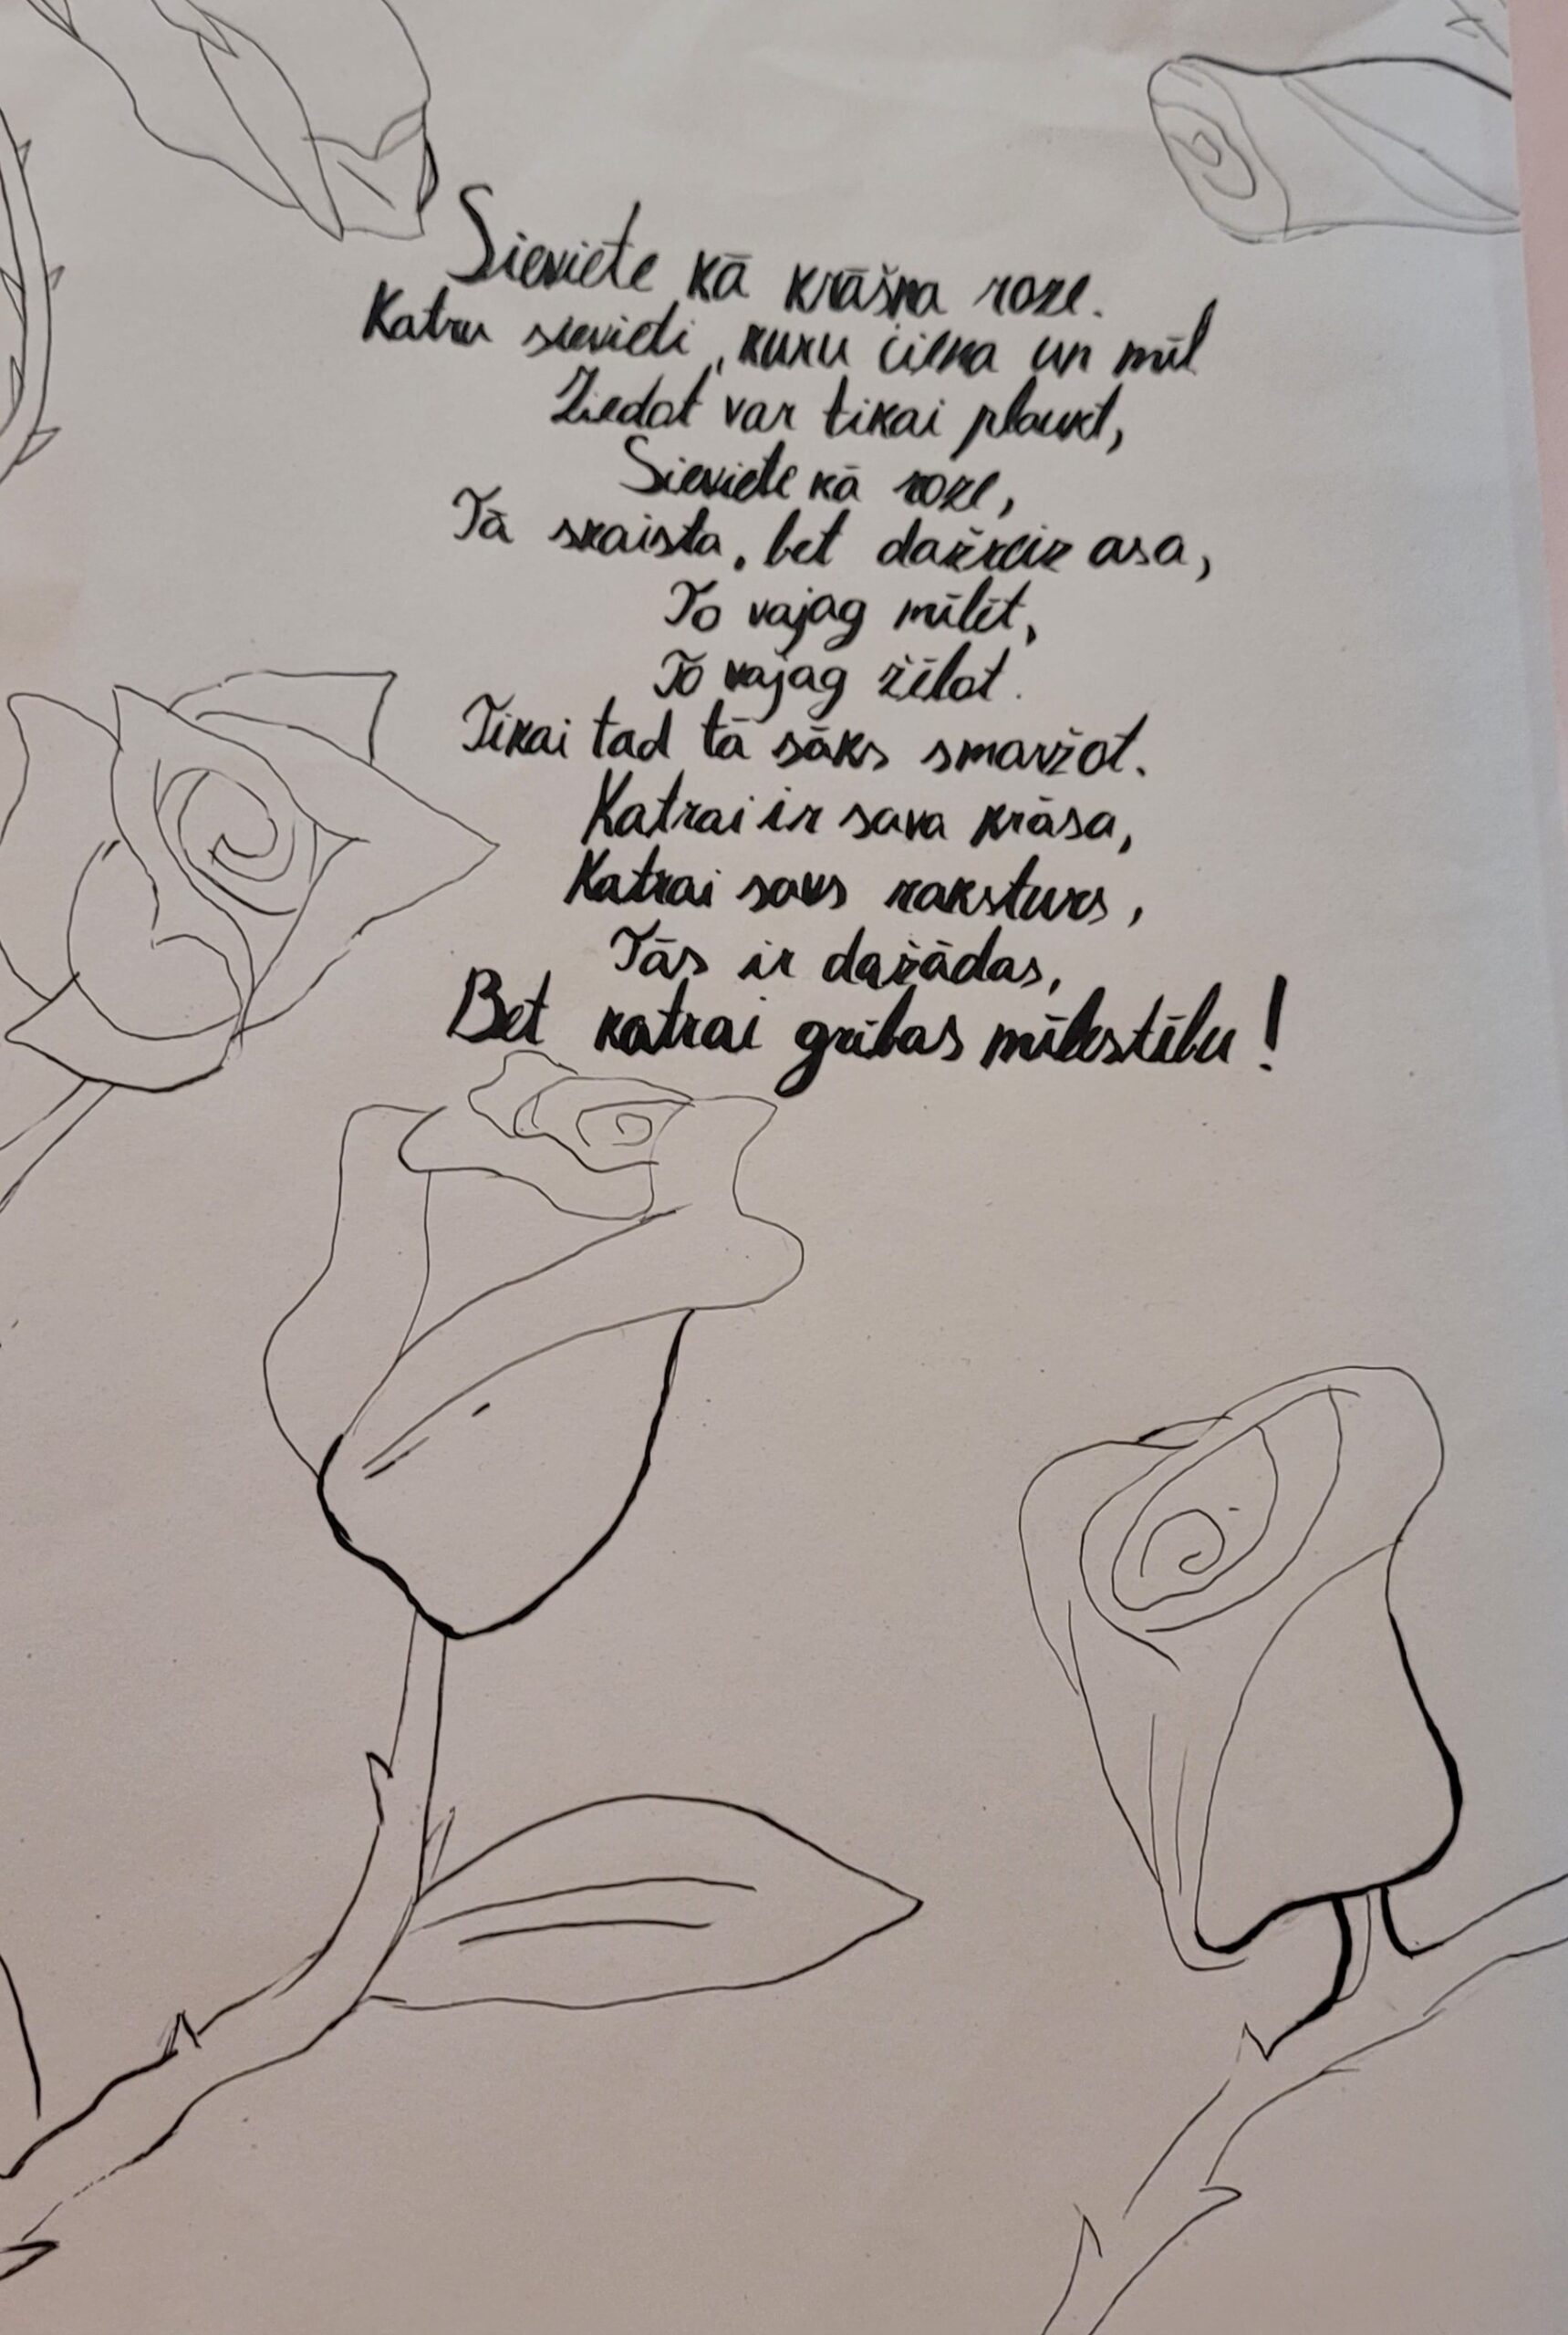 Sieviete kā krāšna roze.
Katru sievieti, kuru ciena un mīl
Ziedot var tikai plaukt,
Sieviete kā roze,
Tā skaista, bet dažreiz asa,
To vajag mīlēt,
To vajag žēlot.
Tikai tad tā sāks smaržot.
Katrai ir sava krāsa,
Katrai savs raksturs,
Tās ir dažādas,
Bet katrai gribas mīlestību!